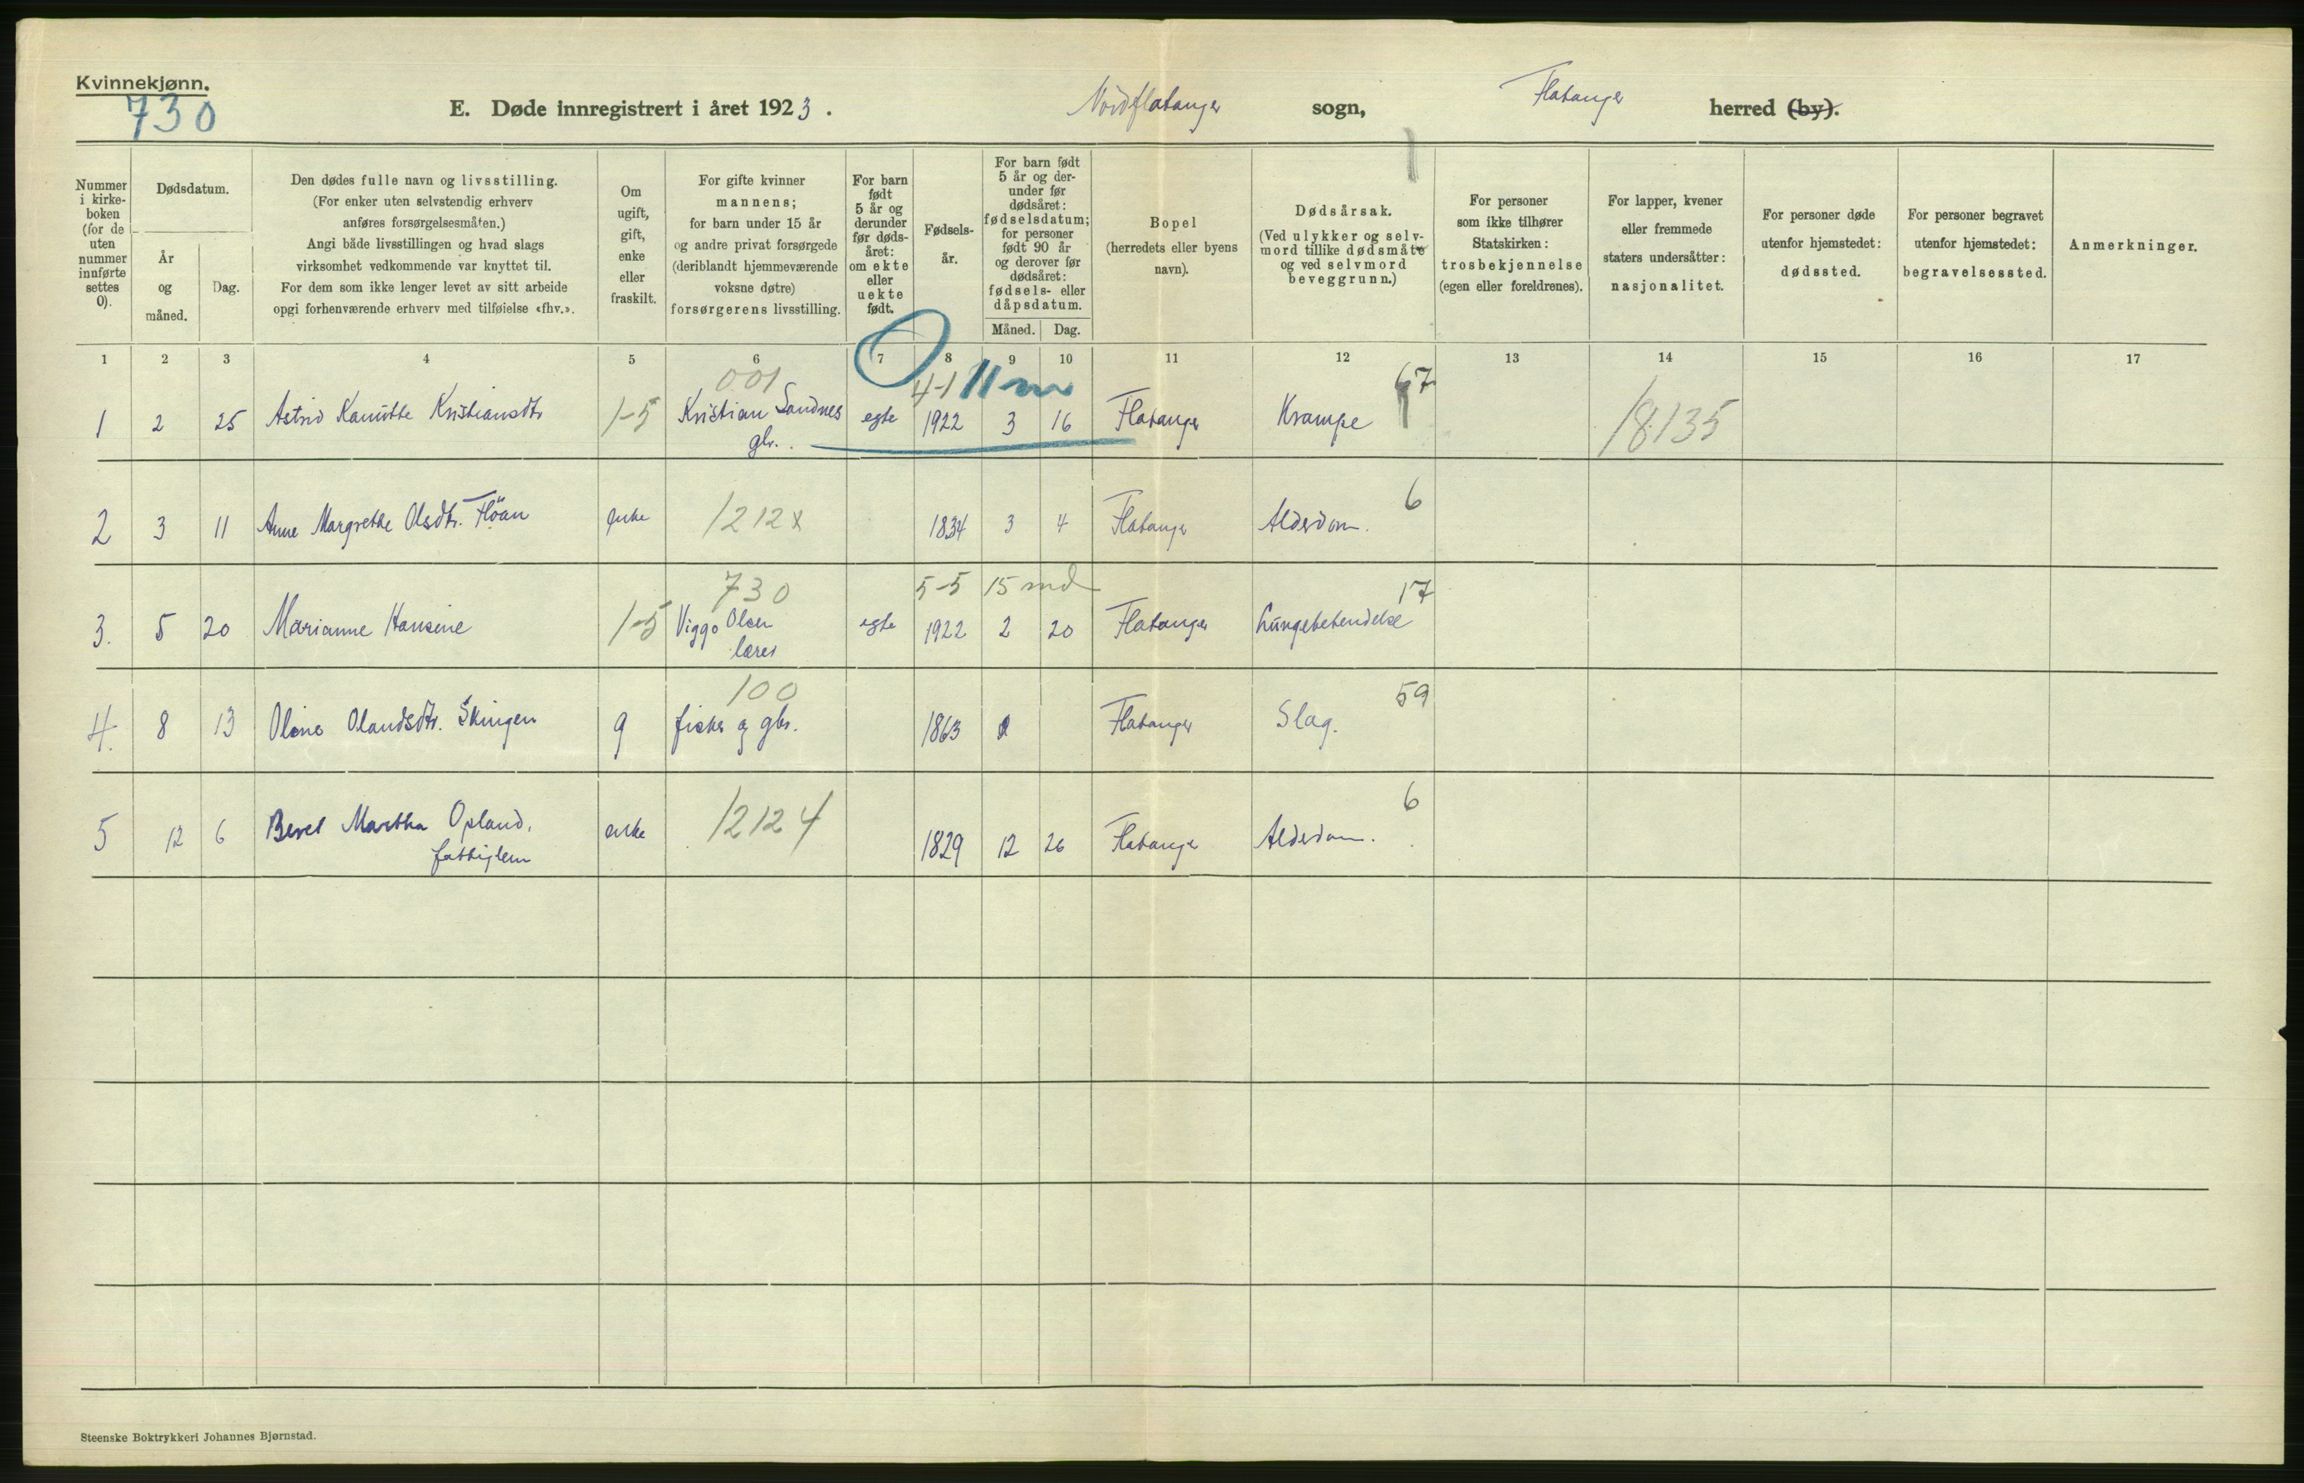 Kvinnekjønn.
730
E. Døde innregistrert i året 1923. Nordflatanger sogn, Flatanger herred (by).
Nummer i kirke-boken (for de uten nummer innførte settes 0).
Dødsdatum.
År og måned.
Dag.
Den dødes fulle navn og livsstilling.
(For enker uten selvstendig erhverv
anføres forsørgelsesmåten.)
Angi både livsstillingen og hvad slags
virksomhet vedkommende var knyttet til.
For dem som ikke lenger levet av sitt arbeide
opgi forhenværende erhverv med tilføielse «fhv.».
Om ugift, gift, enke eller fraskilt.
For gifte kvinner
mannens;
for barn under 15 år
og andre privat forsørgede
(deriblandt hjemmeværende
voksne døtre)
forsørgerens livsstilling.
For barn født 5 år og derunder før døds-året: om ekte eller uekte født.
Fødsels-år.
For barn født
5 år og der-
under før
dødsåret:
fødselsdatum;
for personer
født 90 år
og derover før
dødsåret:
fødsels- eller
dåpsdatum.
Måned. Dag.
Bopel
(herredets eller byens
navn).
Dødsårsak.
(Ved ulykker og selv-
mord tillike dødsmåte
og ved selvmord
beveggrunn.)
For personer
som ikke tilhører
Statskirken:
trosbekjennelse
(egen eller foreldrenes).
For lapper, kvener
eller fremmede
staters undersåtter:
nasjonalitet.
For personer døde
utenfor hjemstedet:
dødssted.
For personer begravet
utenfor hjemstedet:
begravelsessted.
Anmerkninger.
1 2 3 4 5 6 7 8 9 10 11 12 13 14 15 16 17
001 4-1 11 m 67
1 2 25 Astrid Kamitte Kristiansdtr 1-5 Kristian Sandnes egte 1922 3 16 Flatanger Krampe 18135
gbr.
6
2 3 11 Anne Margrethe Olsdtr. Flöan enke 1212x 1834 3 4 Flatanger Alderdom.
730 5-5 15 md 17
3. 5 20 Marianne Hansine 1-5 Viggo Olsen egte 1922 2 20 Flatanger Lungebetendelse
lærer
100 59
4. 8 13 Oline Olandsdtr. Skingen g fisker og gbr. 1863 Flatanger Slag.
6
5 12 6 Beret Martha Opland, enke 12124 1829 12 26 Flatanger Alderdom.
fattiglem
Steenske Boktrykkeri Johannes Bjørnstad.